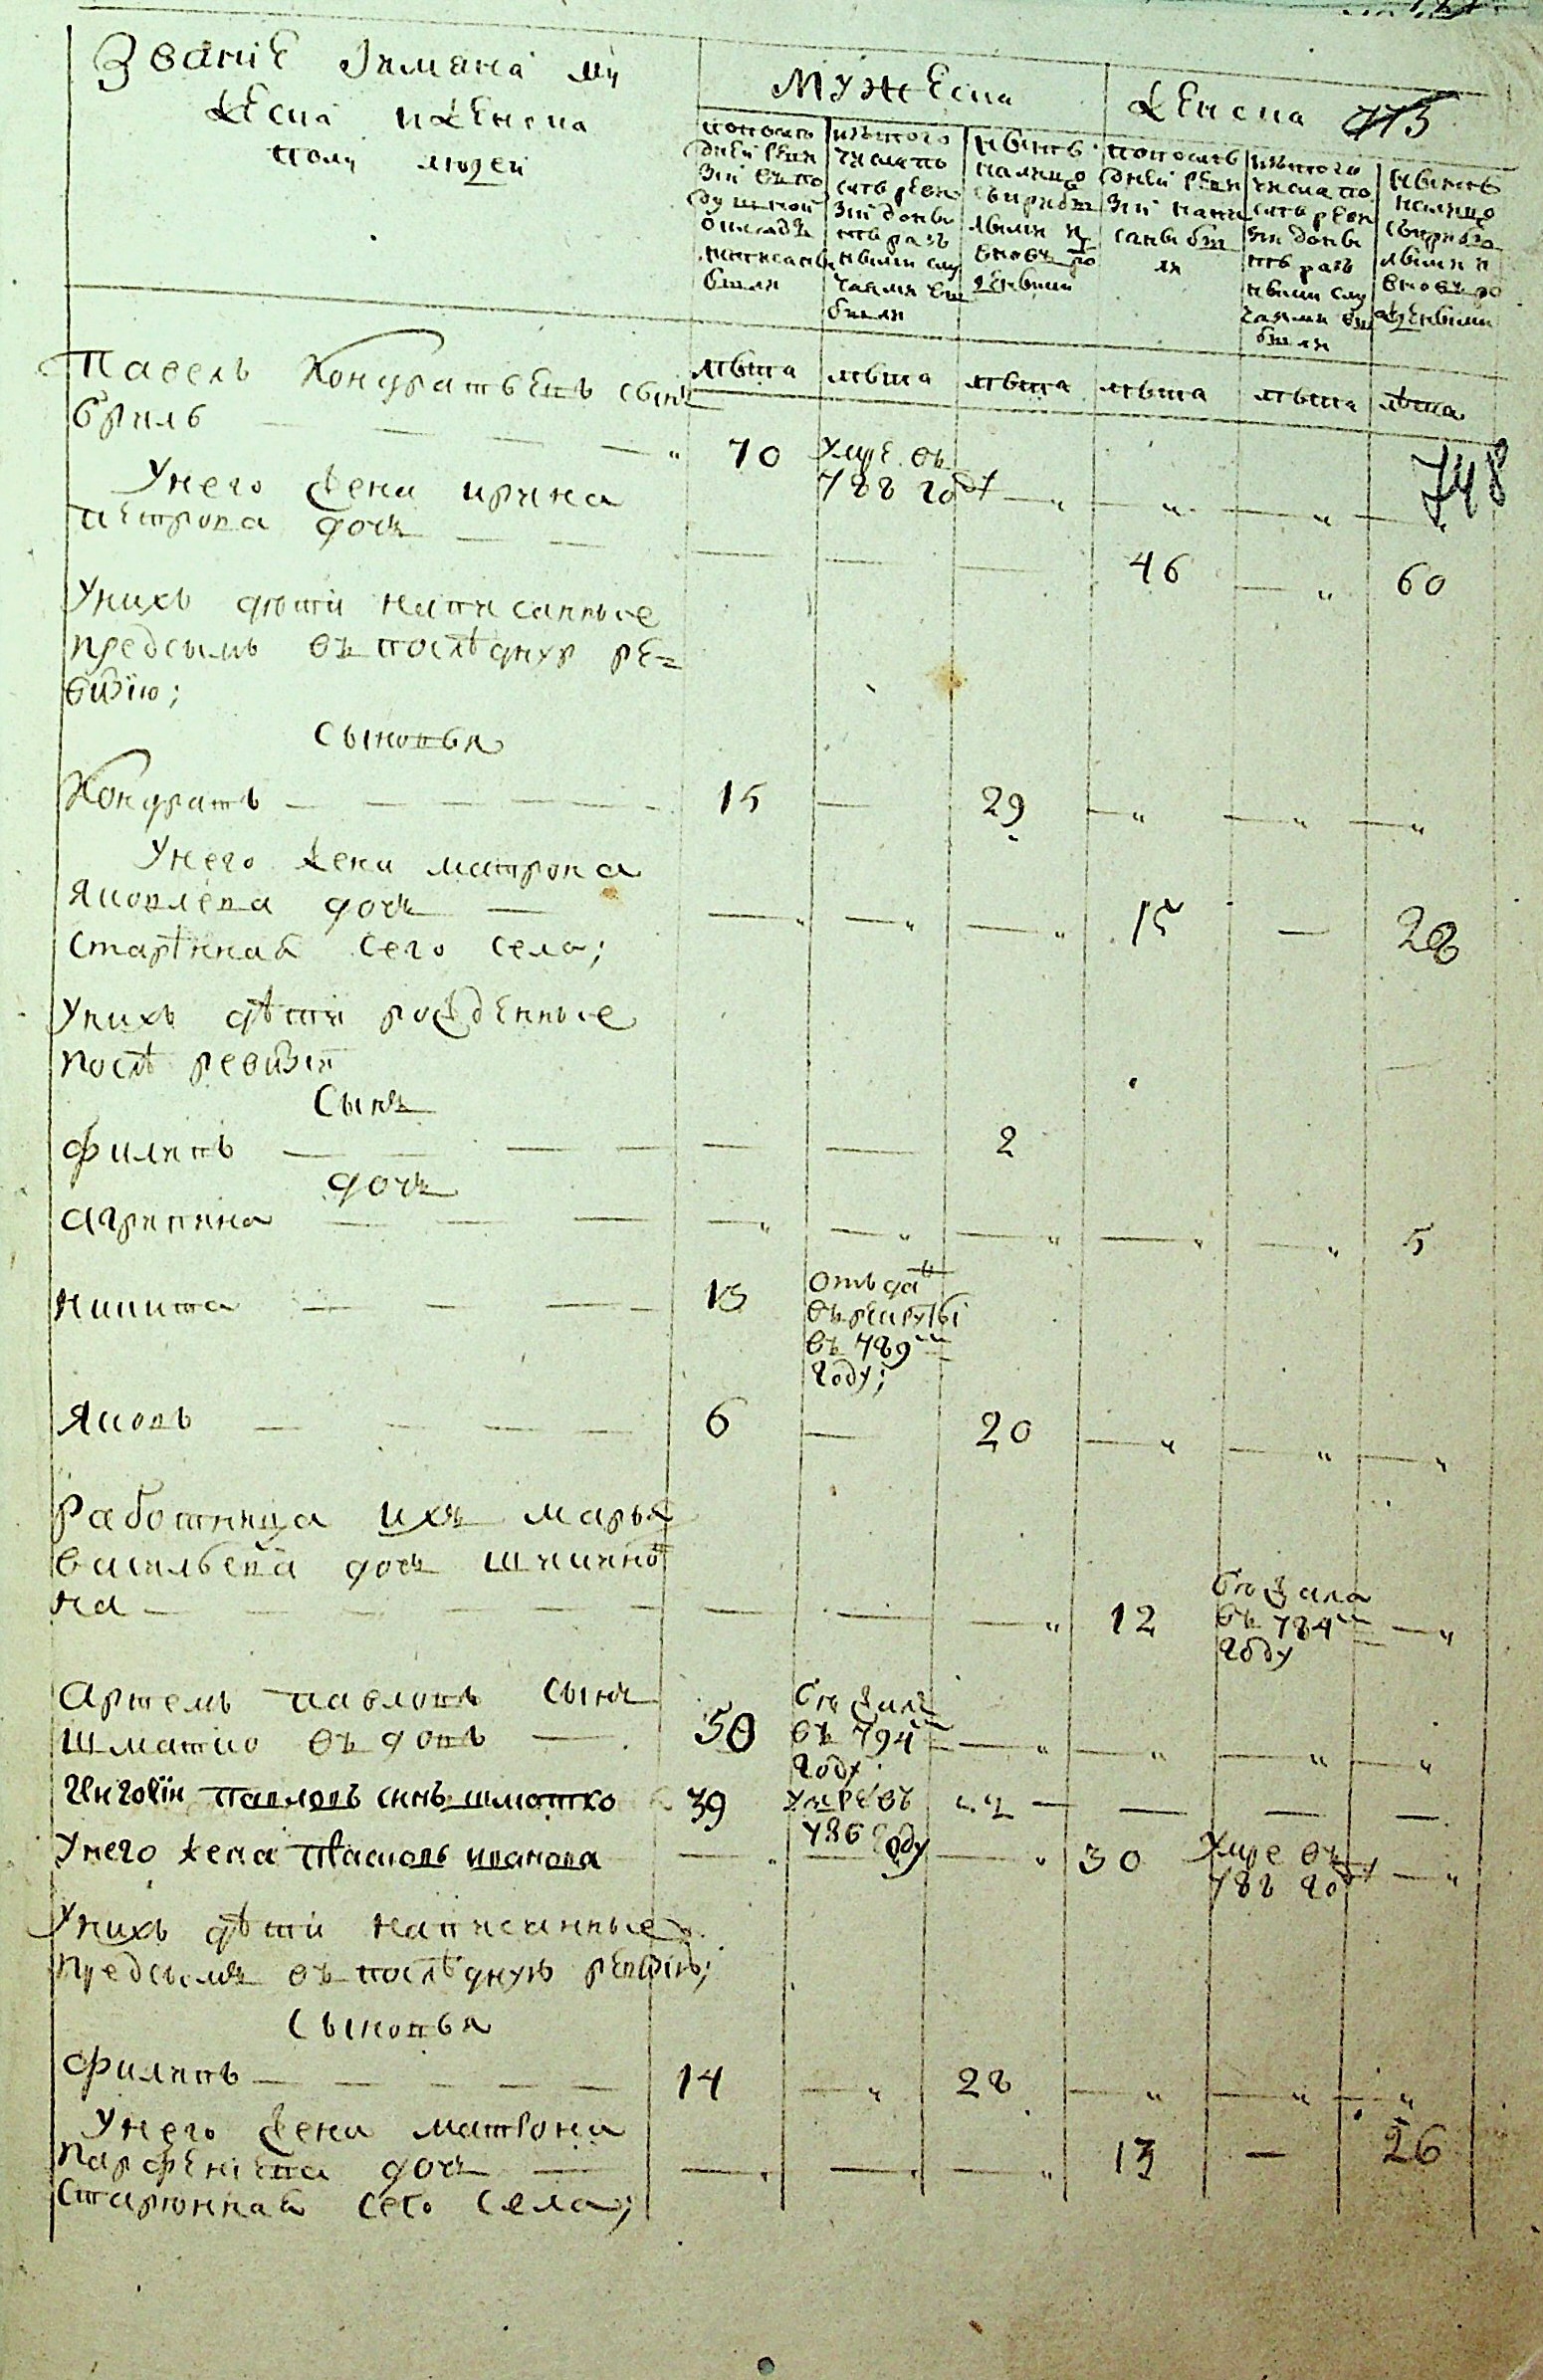 Званіе Іимена му
жеска иженска
полу людей
мужеска
женска 775
попослѣ
дней реви
зіи въпо
душной
окладъ
написаны
были
изътого
числа по
слѣ реви
зіи донын
нѣ разъ
ными слу
чаями вы
были
Нынѣ
налицо
съприбы
лыми и
вновь ро
жденными
попослѣ
дней реви
зіи напи
саны бы
ли
изътого
числа по
слѣ реви
зіи донын
нѣ разъ
ными слу
чаями вы
были
Нынѣ
налицо
съприбы
лыми и
вновь ро
жденными
лѣта лѣта лѣта лѣта лѣта лѣта
Павелъ Кондратьевъ сынъ
бриль — — — — 70 умре въ 748
788 году
Унего жена ирина
петрова дочь — — 46 — 60
Унихъ дѣти написанные
предсымъ въпослѣдную ре=
визію;
Сыновья
Кондратъ — — — — 15 — 29
Унего жена матрона
Яковлева дочь — 15 — 28
Старинная сего села;
Унихъ дѣти рожденные
послѣ ревизіи
Сынъ
филипъ — — — 2
дочь
агрипина — — — 5
никита — — — — 13 отъдаⷩ
върекруты
въ 789ᵐ
году;
Яковъ — — — — 6 — 20
Работница ихъ марья
васильева дочь шкинко
на — — — — — — 12 бѣжала
въ 784ᵐ
году
Артемъ павловъ сынъ
шматко въдовъ — 50 бѣжалъ
въ 794ᵐ
году
Григоріи павловъ синъ шматко 39 умре въ
786 году
Унего жена Пѣасковь иванова 30 Умре въ
788 году
Унихъ дѣти написанные
предсымъ въпослѣднюю ревизію;
Сыновья
Филипъ — — — — 14 — 28
Унего жена матрона
парфеніева дочь — 13 — 26
старинная сего села;